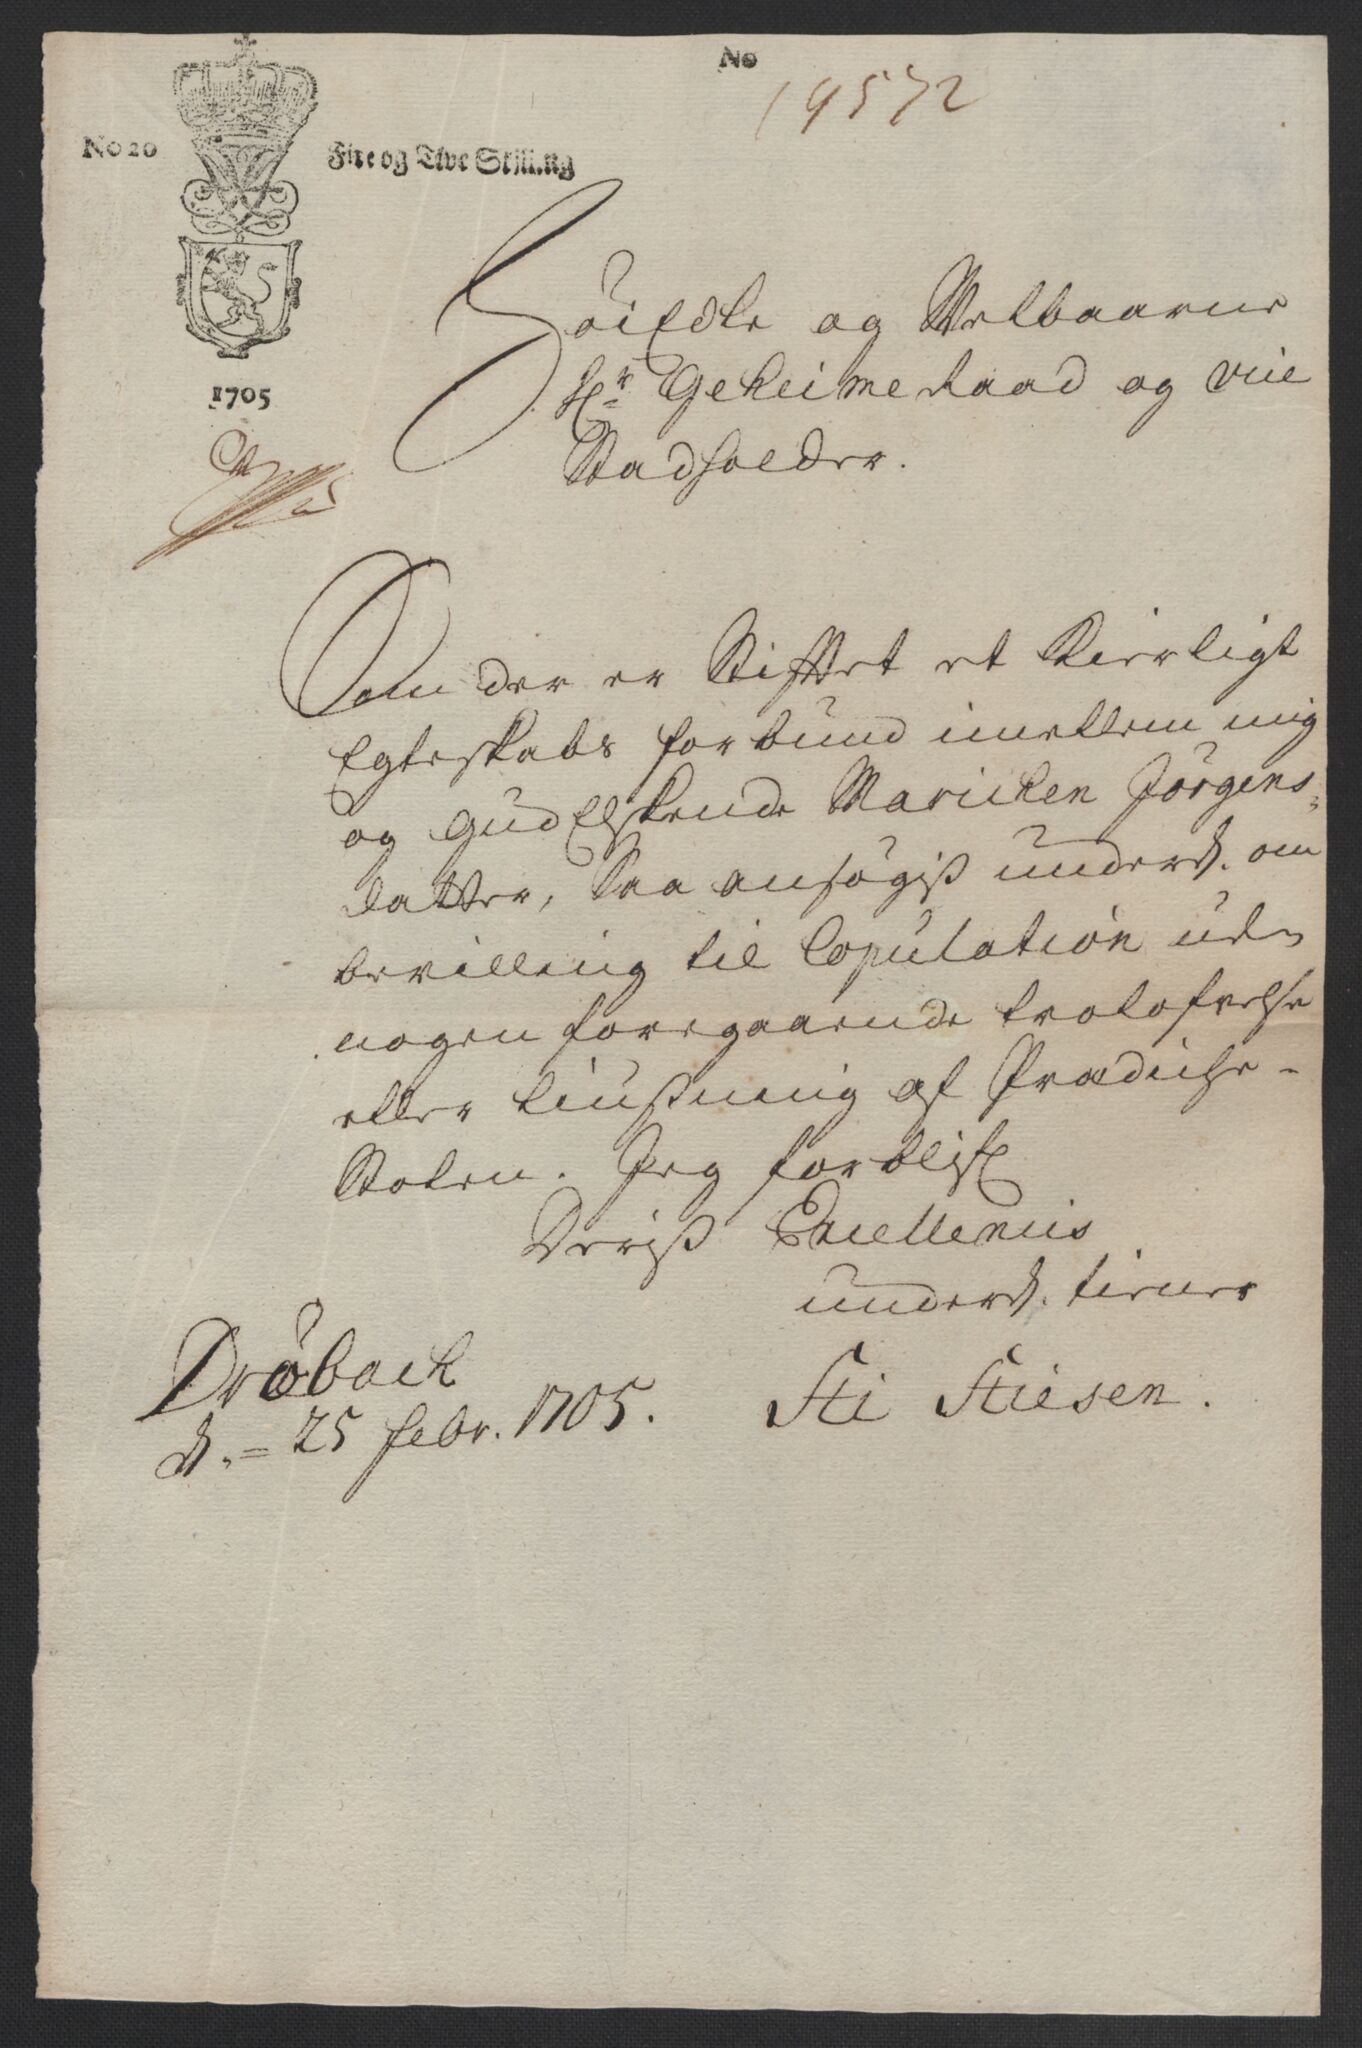 No
19572
No 20
Fire og Tive Skilling
1705
HöiEdle og Welbaarne
Hr. Geheimeraad og vice
Stadholder.
Som der er Stifftet et Kierligt
Egteskabs forbund imellem mig
og GudElskende Maricken Jörgens-
datter, Saa ansögiß underd. om
bevilling til Copulation uden
nogen foregaaende trolofvelse
eller liußning af Prædiche-
Stolen. Jeg forblifr
Deriß Excellencis
underd. tiener
Dröback
d. = 25 febr. 1705.
Sti Stiesen.